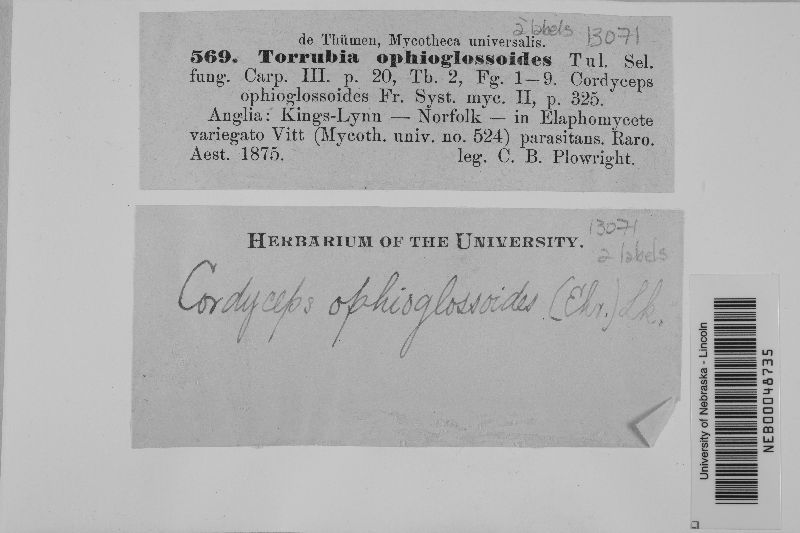 2 labels 13071
de Thümen, Mycotheca universalis.
569. Torrubia ophioglossoides Tul. Sel.
fung. Carp. III. p. 20, Tb. 2, Fg. 1—9. Cordyceps
ophioglossoides Fr. Syst. myc. II, p. 325.
Anglia: Kings-Lynn — Norfolk — in Elaphomycete
variegato Vitt (Mycoth. univ. no. 524) parasitans. Raro.
Aest. 1875. leg. C. B. Plowright.
13071
HERBARIUM OF THE UNIVERSITY.
2 labels
Cordyceps ophioglossoides (Ehr.) Lk.
University of Nebraska - Lincoln
NEB00048735